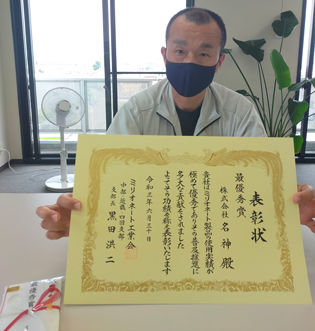 表彰状
最優秀賞
株式会社 名神 殿
貴社はミリオネート製品の使用実績が
極めて優秀でありその普及推進に
多大な貢献をされました
よってその功績を称え表彰いたします
令和三年六月三十日
ミリオネート工業会
中部 近畿 四国支部
支部長 黒田 洪二